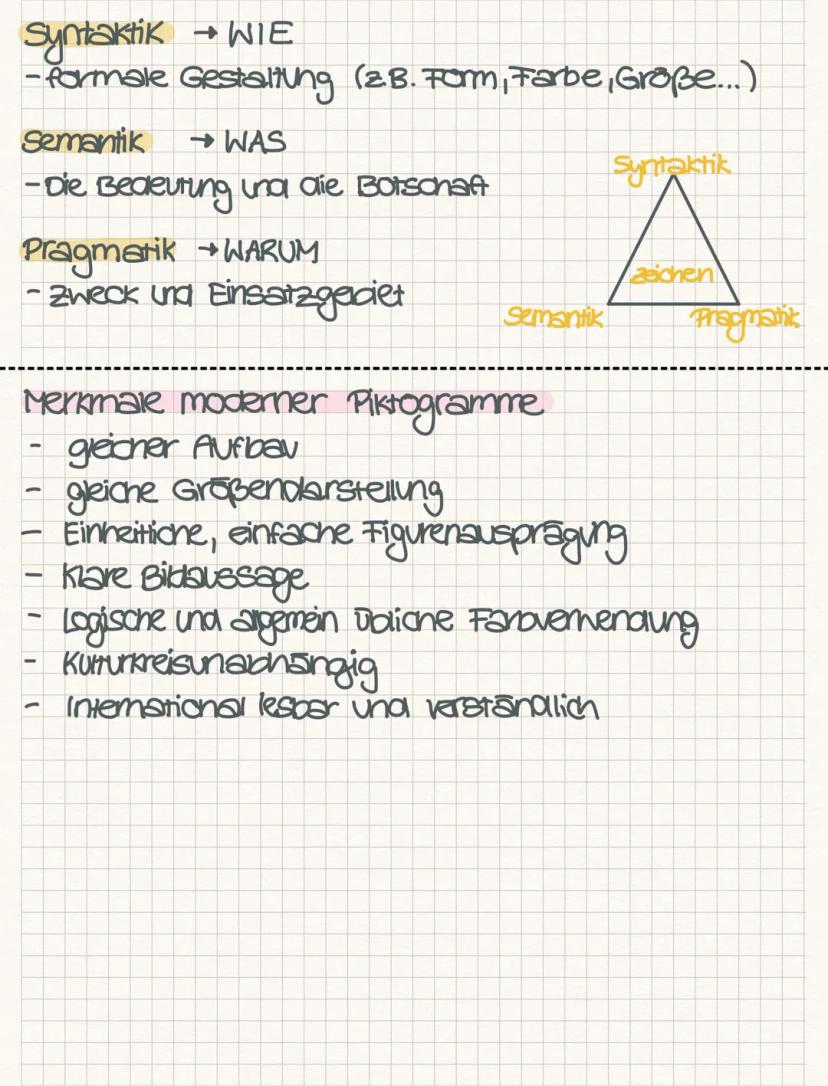 Syntaktik → WIE
- formale Gestaltung (z.B. Form, Farbe, Größe...)
Semantik → WAS
- Die Bedeutung und die Botschaft
Pragmatik → WARUM
- Zweck und Einsatzgebiet
Syntaktik
zeichen
Semantik
Pragmatik
Merkmale moderner Piktogramme
- gleicher Aufbau
- gleiche Größendarstellung
- Einheitliche, einfache Figurenausprägung
- Klare Bildaussage
- Logische und allgemein übliche Farbverwendung
- Kulturkreisunabhängig
- International lesbar und verständlich